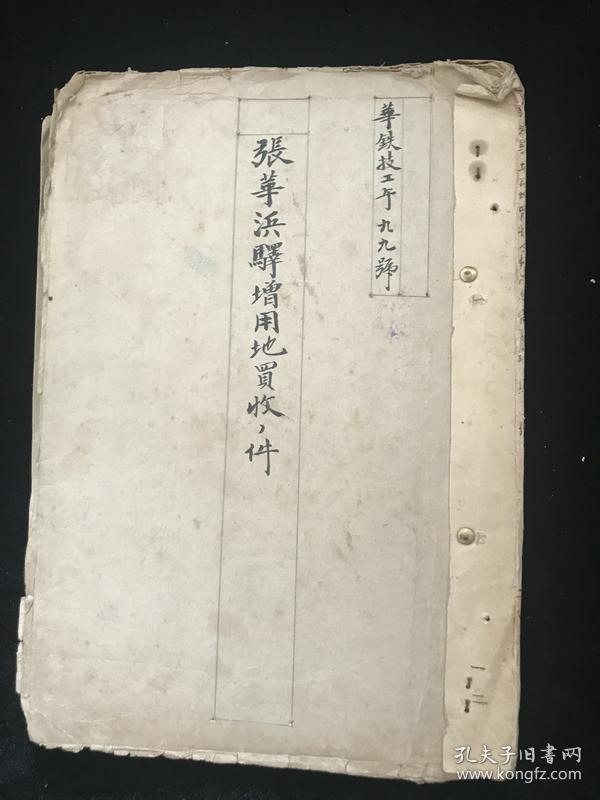 華鉄技工第九九號
張華浜驛増用地買收ノ件
一二
孔夫子旧書网
www.kongfz.com